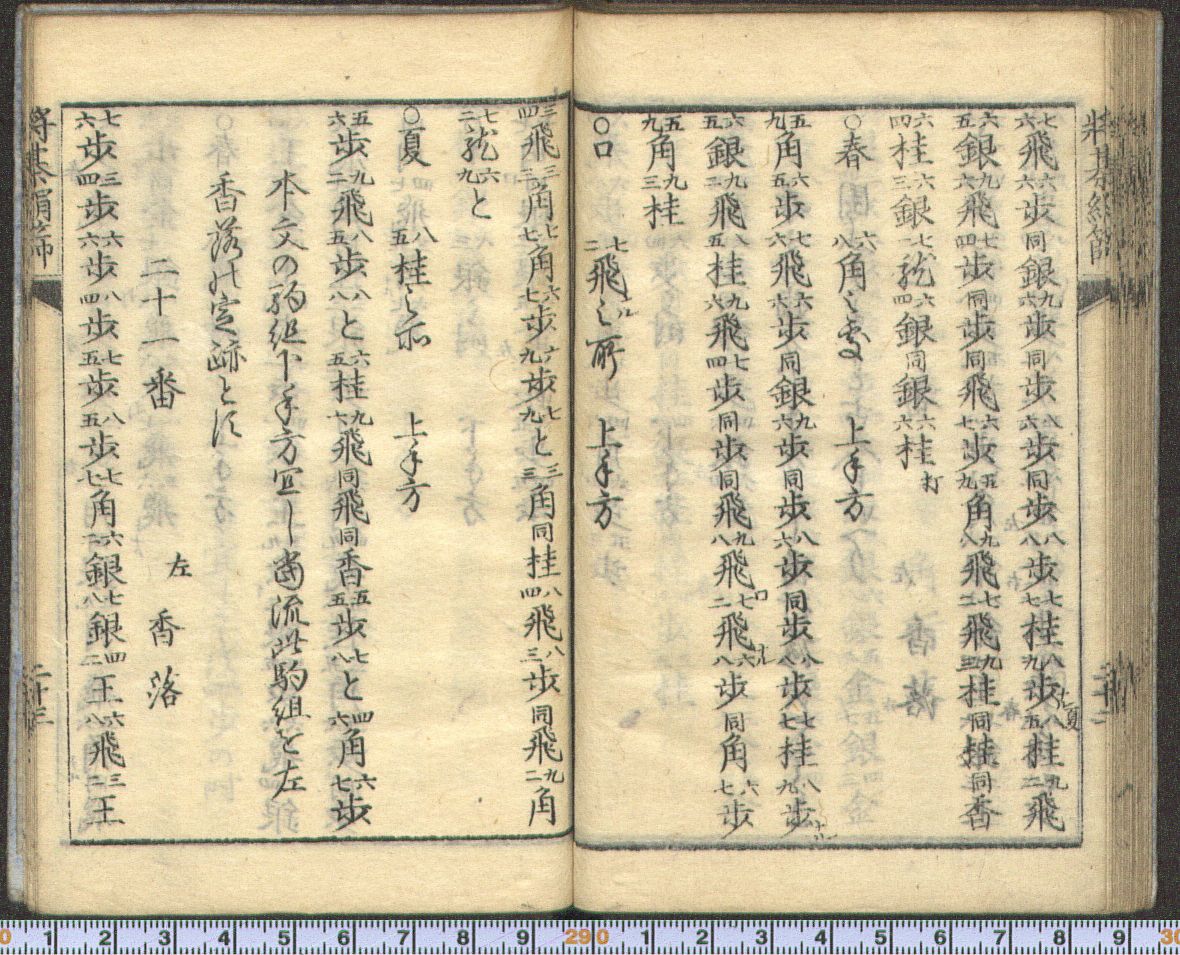 將棊絹篩 二十二
七六飛六六歩同銀九六歩同歩八六歩同歩八八歩七七桂八九歩八五桂九二飛
六五銀九六飛七四歩同歩同飛六七歩五九角九八飛七二飛九三桂同桂同香
六四桂六三銀七一龍六四銀同銀六六桂打
○春 六八角之変 上手方
五九角六五歩七六飛六六歩同銀九六歩同歩八六歩同歩八八歩七七桂八九歩
六五銀九二飛五桂九六飛七四歩同歩同飛九八飛七二飛六八歩同角六七歩
五九角九三桂
○口 七二飛ル之所 上手方
三四飛三三角七七角六七歩八九歩七九と三三角同桂八四飛八三歩同飛九二角
七二龍六九と
○夏 八五桂之所 上手方
五六歩九二飛八五歩八八と六五桂九六飛同飛同香五五歩七八と四六角六七歩
本文の駒組下手方宜し當流此駒組を左
香落の定跡とす
二十一番 左香落
七六歩三四歩六六歩八四歩七五歩八五歩七七角六二銀七八銀四二王六八飛三二王
將棊絹篩 二十三